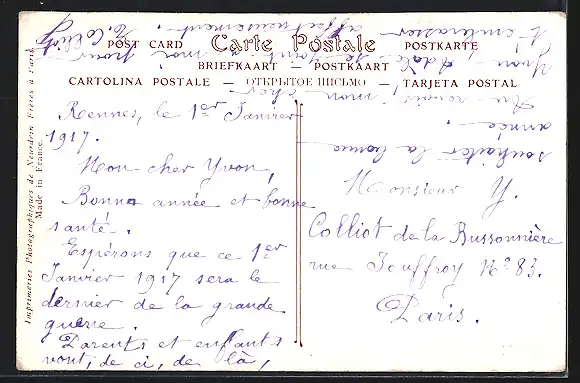 POST CARD Carte Postale POSTKARTE
BRIEFKAART — POSTKAART
CARTOLINA POSTALE — ОТКРЫТОЕ ПИСЬМО — TARJETA POSTAL
Imprimeries Photographiques de Neurdein Frères à Paris
Made in France
Rennes, le 1er Janvier
1917.
Mon cher Yvon,
Bonne année et bonne
santé.
Espérons que ce 1er
Janvier 1917 sera le
dernier de la grande
guerre.
Parents et enfants
vont, de ci, de là,
souhaiter la bonne
année.
Au revoir, mon cher
Yvon. Adèle se joint
à moi pour
t'embrasser
affectueusement.
Y. Colliot
Monsieur Y.
Colliot de la Bussonnière
rue Jouffroy No 83.
Paris.